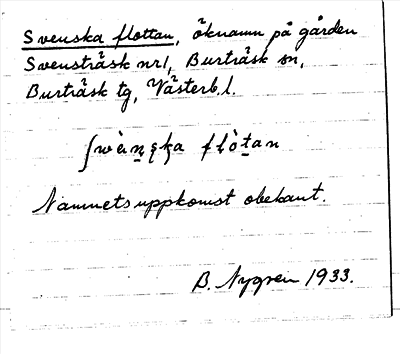 Svenska flottan, öknamn på gården
Svensträsk nr 1, Burträsk sn,
Burträsk tg, Västerb. l.
Namnets uppkomst obekant.
B. Nygren 1933.